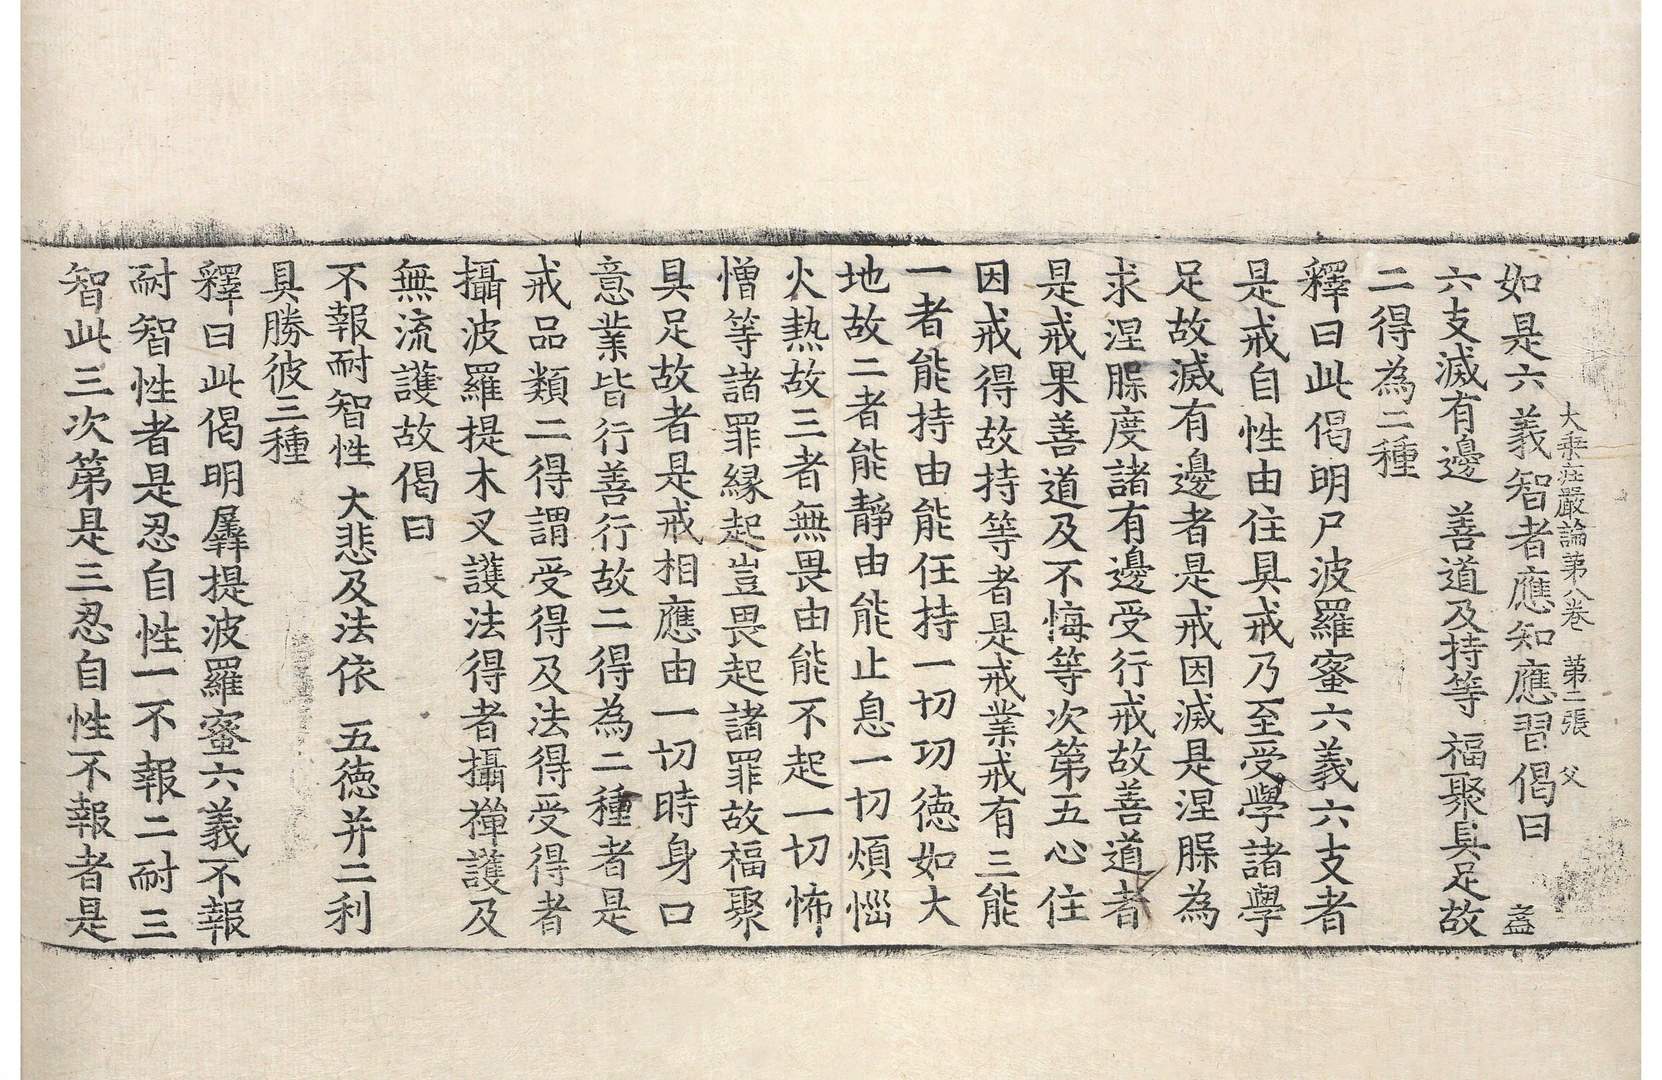 大乘庄嚴論第八卷　第二張　父
如是六義智者應知應習偈曰　盉
六支滅有邊　善道及持等　福聚具足故
二得為二種
釋曰此偈明尸波羅蜜六義六支者
是戒自性由住具戒乃至受學諸學
足故滅有邊者是戒因滅是涅膎為
求涅膎度諸有邊受行戒故善道者
是戒果善道及不悔等次第五心住
因戒得故持等者是戒業戒有三能
一者能持由能任持一切功德如大
地故二者能靜由能止息一切煩惱
火熱故三者無畏由能不起一切怖
憎等諸罪緣起豈畏起諸罪故福聚
具足故者是戒相應由一切時身口
意業皆行善行故二得為二種者是
戒品類二得謂受得及法得受得者
攝波羅提木叉護法得者攝禪護及
無流護故偈曰
不報耐智性　大悲及法依　五德并二利
具勝彼三種
釋曰此偈明羼提波羅蜜六義不報
耐智性者是忍自性一不報二耐三
智此三次第是三忍自性不報者是